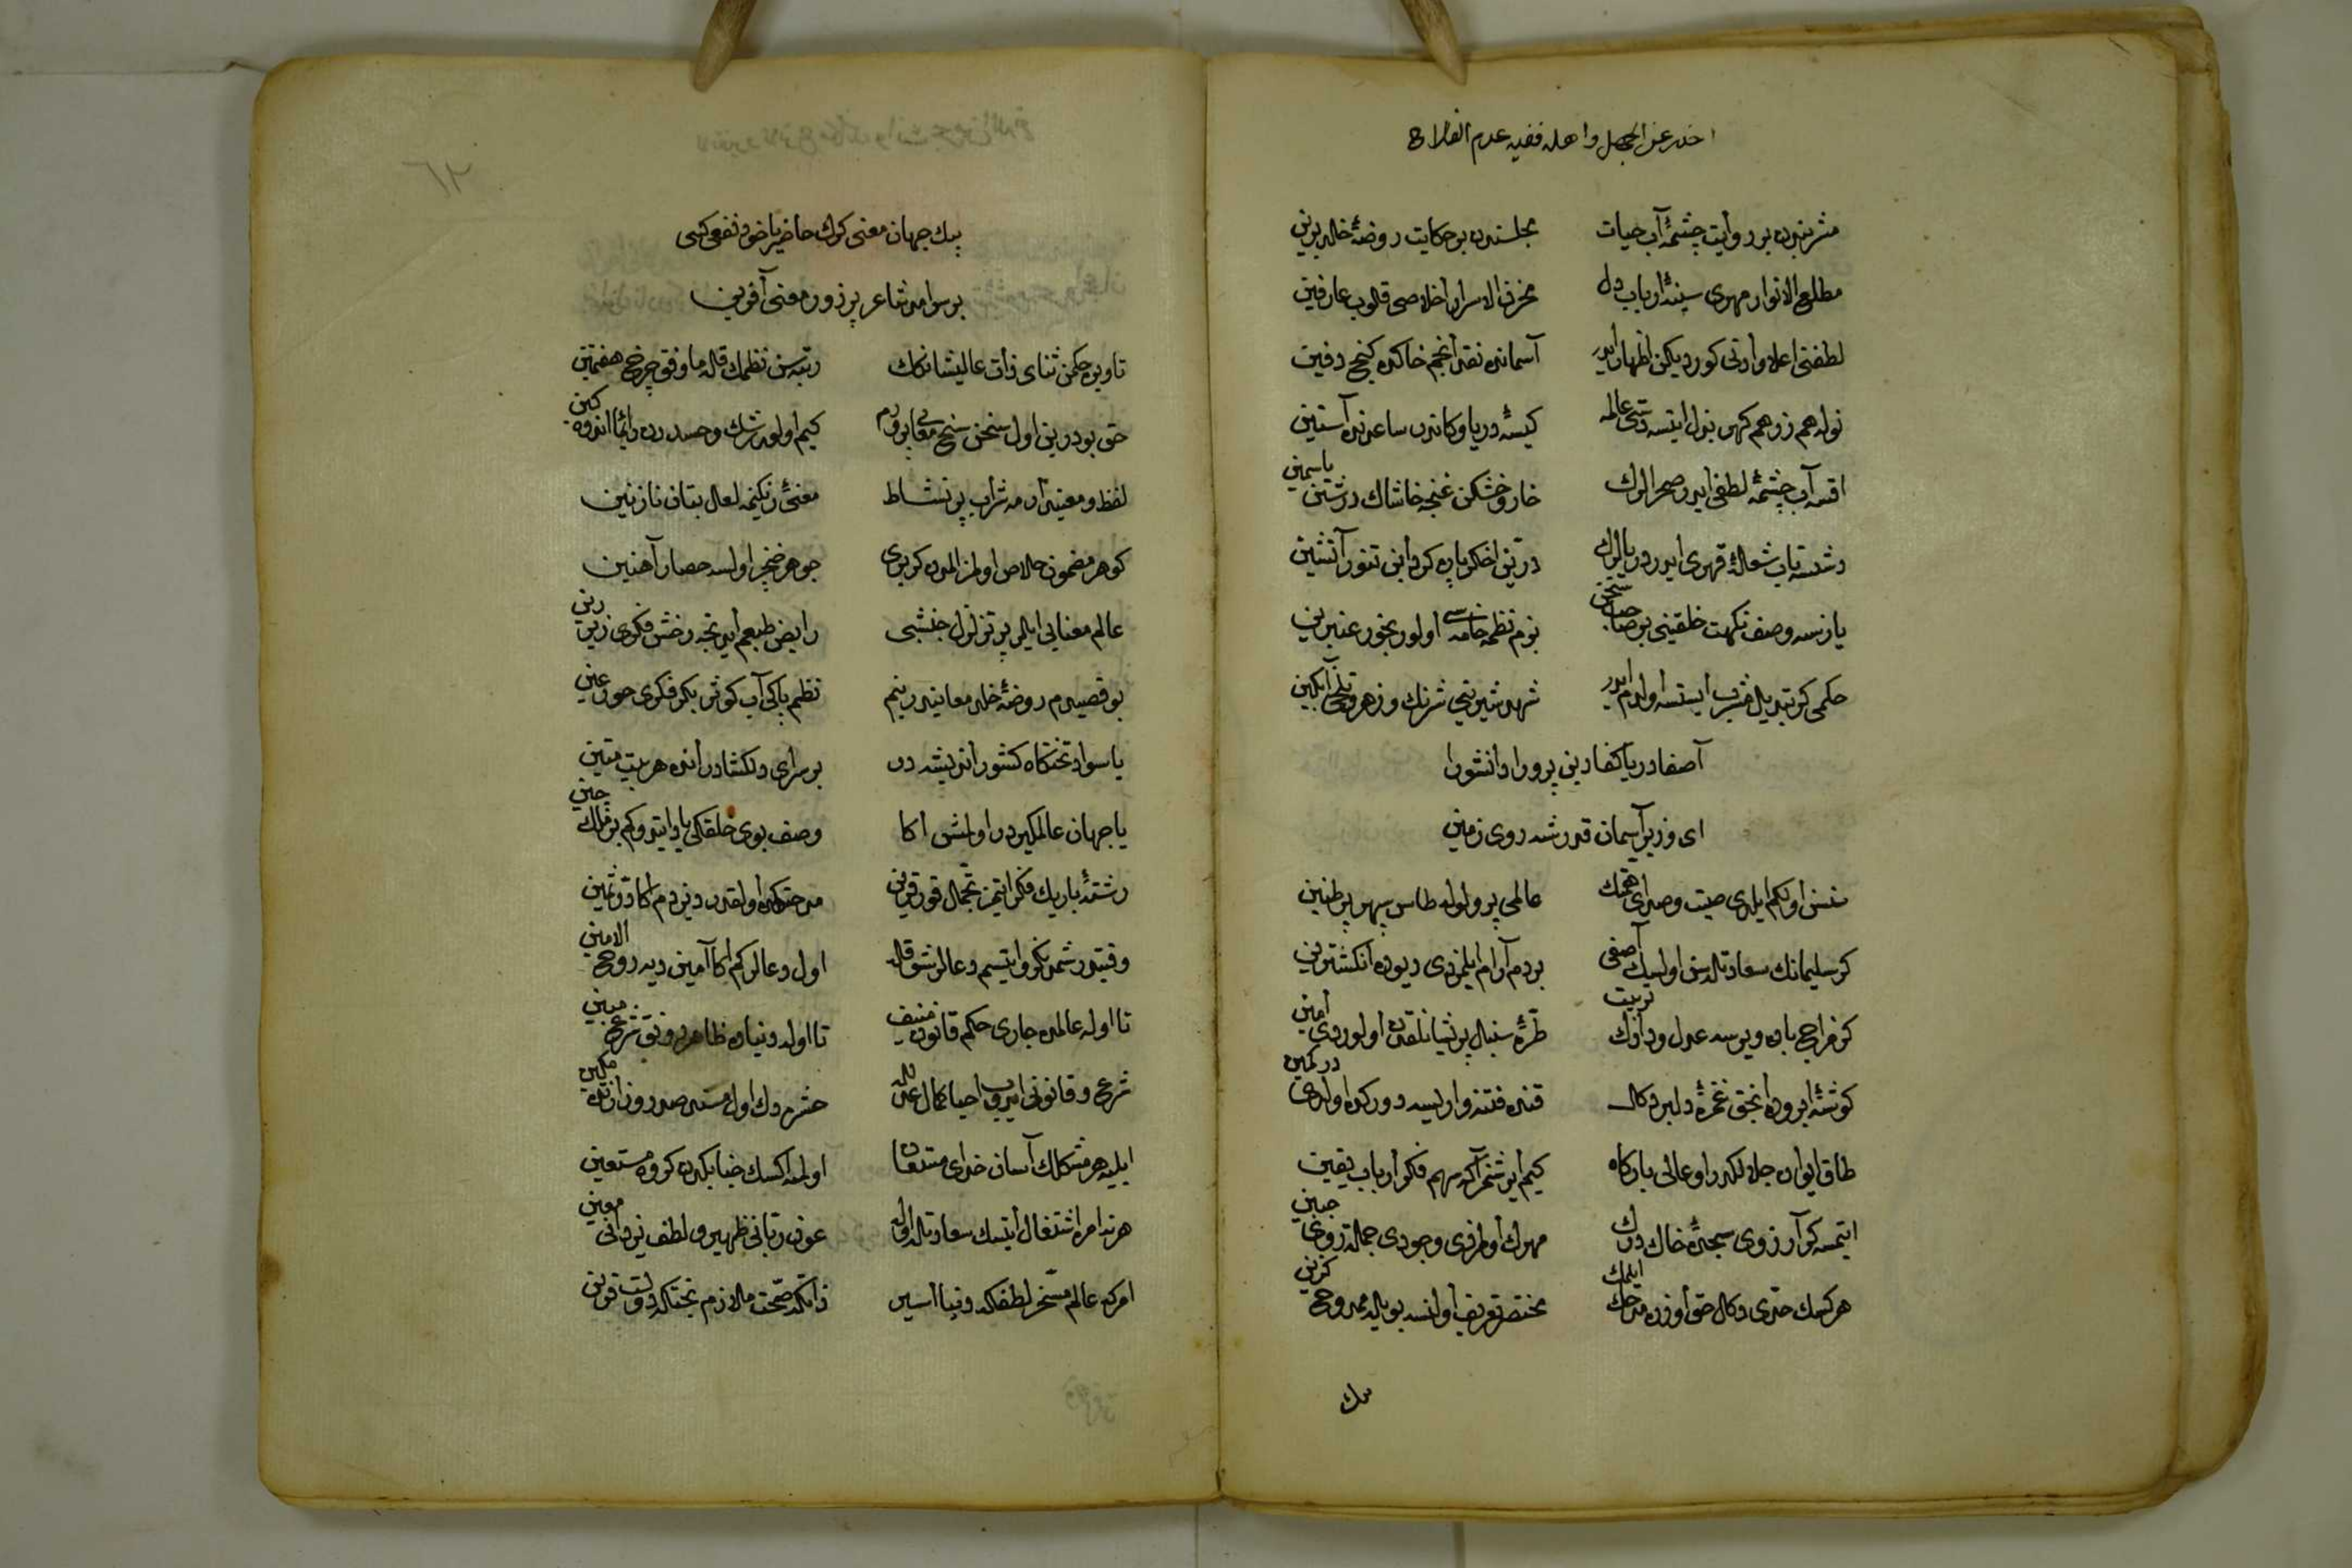 احذر عن الجهل واهله ففیه عدم الفلاح
مشربندن بر روایت چشمهٔ آب حیات مجلسندن بر حکایت روضهٔ خلد برین
مطلع الانوار مهری سینهٔ ارباب دل مخزن الاسرار اخلاصی قلوب عارفین
لطفنی اعلا وادنی کوردیکن اظهار ایدر آسمانده نقد انجم خاکده کنج دفین
نوله هم زر هم کهر بذل ایتسه دستی عالمه کیسهٔ دریا وکاندر ساعدنده آستین
اقسه آب چشمهٔ لطفی ایدر صحرالرك خار وخشکن غنچه خاشاك درشتن یاسمین
دشسه تاب شعلهٔ قهری ایدر دریالرك درّین اخکرپاره کردابن تنور آتشین
یازسه وصف نکهت خلقینی بو صاحب سخن بزم نظمه خامه سی اولور بخور عنبرین
حکمی کر تبدیل مشرب ایتسه اولدم ایدر شهد شیرینی شرنك وزهر تلخی انکبین
آصفا دریا کفا دین پرورا دانشورا
ای وزیر آسمان قدر شه روی زمین
سنسن اولکم ایلدی صیت وصدای همتك عالمی پر ولوله طاس سپهری پر طنین
کر سلیمانك سعادتله سن اولسیك آصفی بردم آرام ایلمزدی دیوده انکشترین
کر مزاج باده ویرسه عدل ودادك تربیت طرّهٔ سنبل پریشانلقدن اولوردی امین
کوشهٔ ابروده انجق غمزهٔ دلبر دکل قنده فتنه وار ایسه دورکده اولدی در کمین
طاق ایوان جلالکدر او عالی بارکاه کیم ایرشمز آکه سهم فکر ارباب یقین
ایتمسه کر آرزوی سجدهٔ خاك درك مهرك اولمزدی وجودی جمله روی جبین
هر کسك حدّی دکل حق اوزره مدحك ایلمك مختصر تعریف اولنسه بویله ممدوح کزین
سك
٦٢
بیك جهان معنی کرك حاضر یاخود نفعی کبی
بر سوامد شاعر پر زور معنی آفرین
تا ویره حکمن ثنای ذات عالیشانکك رتبه سن نظمك قله مافوق چرخ هفتمین
حق بودر بن اول سخن سنج معانی پرورم کیم اولور رشك وحسددن دائما اندوه کین
لفظ ومعنیدر مه شراب پر نشاط معنیٔ رنکینمه لعل بتان نازنین
کوهر مضمون خلاص اولمز المدن کریری جوهر خنجر اولسه حصار آهنین
عالم معنایی ایلر پر تزلزل جنبشی رایض طبعم ایدنجه رخش فکری زیر زین
بو قصیدم روضهٔ خلد معانیدر بنم نظم پاکی آب کوثر بکر فکری حور عین
یا سواد تختکاه کشور اندیشه در بر سرای دلکشادر انده هر بیت متین
یا جهان عالمکیردر اولمش اکا وصف بوی خلقکی یاد ایتدوکم بر ملك چین
رشتهٔ باریك فکر ایتمز تحمل قورقرین مدحتکده اولقدر دیزدم اکا درّ ثمین
وقتیدر شمدنکرو ایتسم دعالر شوقله اول دعالر کم اکا آمین دیه روح الامین
تا اوله عالمده جاری حکم قانون منیف تا اوله دنیاده ظاهر رونق شرع مبین
شرع وقانونی ایدوب احیا کمال عدلله حشره دك اول مسند صدر وزارتده مکین
ایلیه هر مشکلك آسان خدای مستعان اولمه اکسك جنابکدن کروه مستعین
هر نه امره اشتغال ایتسك سعادتله اوله عون ربّانی ظهیر ولطف یزدانی معین
امرکه عالم مسخّر لطفکه دنیا اسیر ذاتکه صحّت ملازم بختکه دولت قرین